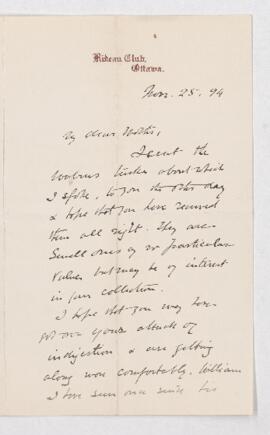 Rideau Club,
Ottawa.
Nov. 25. 94
My dear
I sent the
walrus tusks about which
I spoke, to you the other day
& hope that you have received
them all right. They are
small ones of no particular
value but may be of interest
in your collection.
I hope that you may have
got over your attack of
indigestion & are getting
along more comfortably. William
I have seen once since his